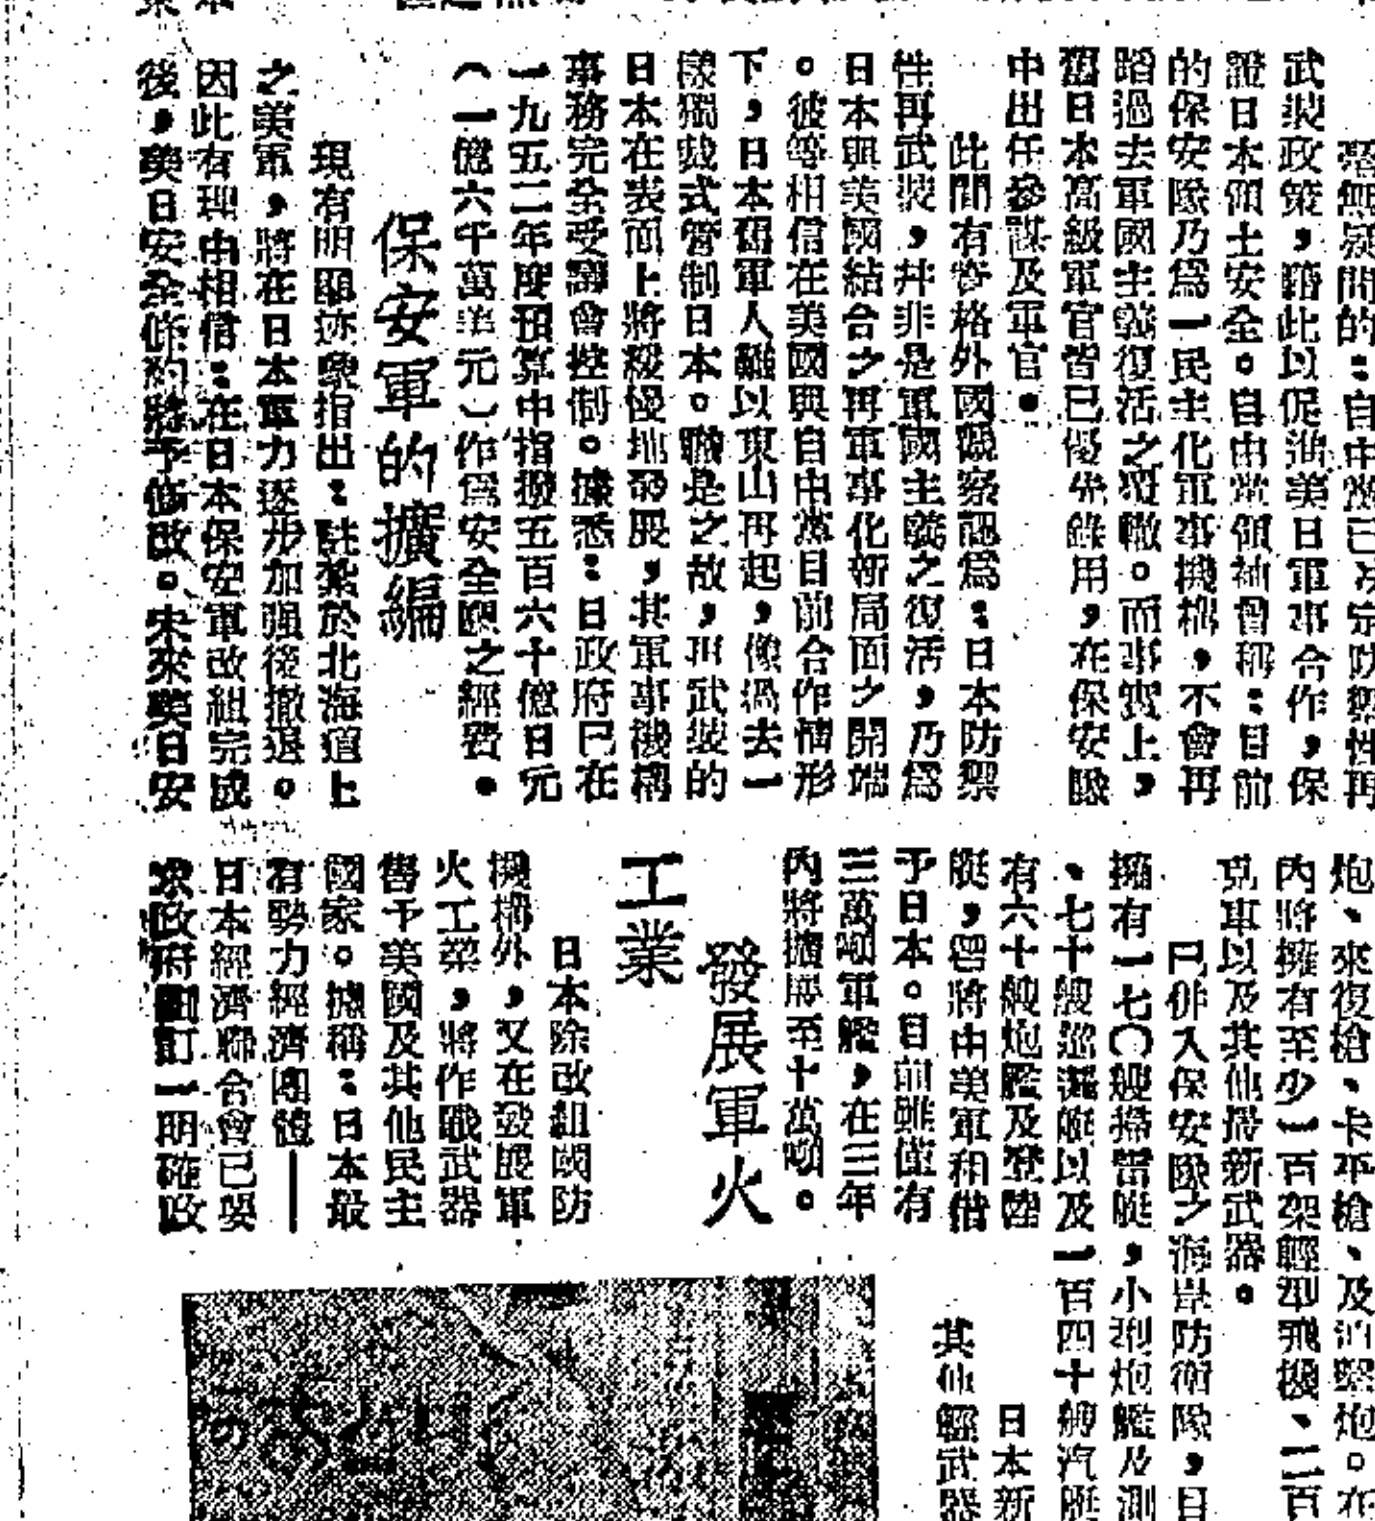 毫無疑問的：自由黨已决定防禦性再
武裝政策，藉此以促進美日軍事合作，保
證日本領土安全。自由黨領袖曾稱：目前
的保安隊乃爲一民主化軍事機構，不會再
蹈過去軍國主義復活之覆轍。而事實上，
舊日本高級軍官皆已優先錄用，在保安隊
中出任參謀及軍官。
此間有資格外國觀察認爲：日本防禦
性再武裝，幷非是軍國主義之復活，乃爲
日本與美國結合之再軍事化新局面之開端
。彼等相信在美國與自由黨目前合作情形
下，日本舊軍人難以東山再起，像過去一
樣獨裁式管制日本。職是之故，再武裝的
日本在表面上將緩慢地發展，其軍事機構
事務完全受議會控制。據悉：日政府已在
一九五二年度預算中指撥五百六十億日元
（一億六千萬美元）作爲安全隊之經費。
保安軍的擴編
現有明顯迹象指出：駐紮於北海道上
之美軍，將在日本軍力逐步加强後撤退。
因此有理由相信：在日本保安軍改組完成
後，美日安全條約將予修改。未來美日安
炮、來復槍、卡平槍、及 炮。在
內將擁有至少一百架輕 飛機、二百
克車以及其他最新武器。
已併入保安隊之海岸防衛隊，目
擁有一七〇艘掃雷艇，小型炮艦及測
、七十艘巡邏艇以及一百四十艘汽艇
有六十艘炮艦及登陸
艇，曾將由美軍租借
予日本。目前雖僅有
三萬噸軍艦，在三年
內將擴展至十萬噸。
日本新
其他輕武器
發展軍火
工業
日本除改組國防
機構外，又在發展軍
火工業，將作戰武器
售予美國及其他民主
國家。據稱：日本最
有勢力經濟團體——
日本經濟聯合會已要
求政府 訂一明確政